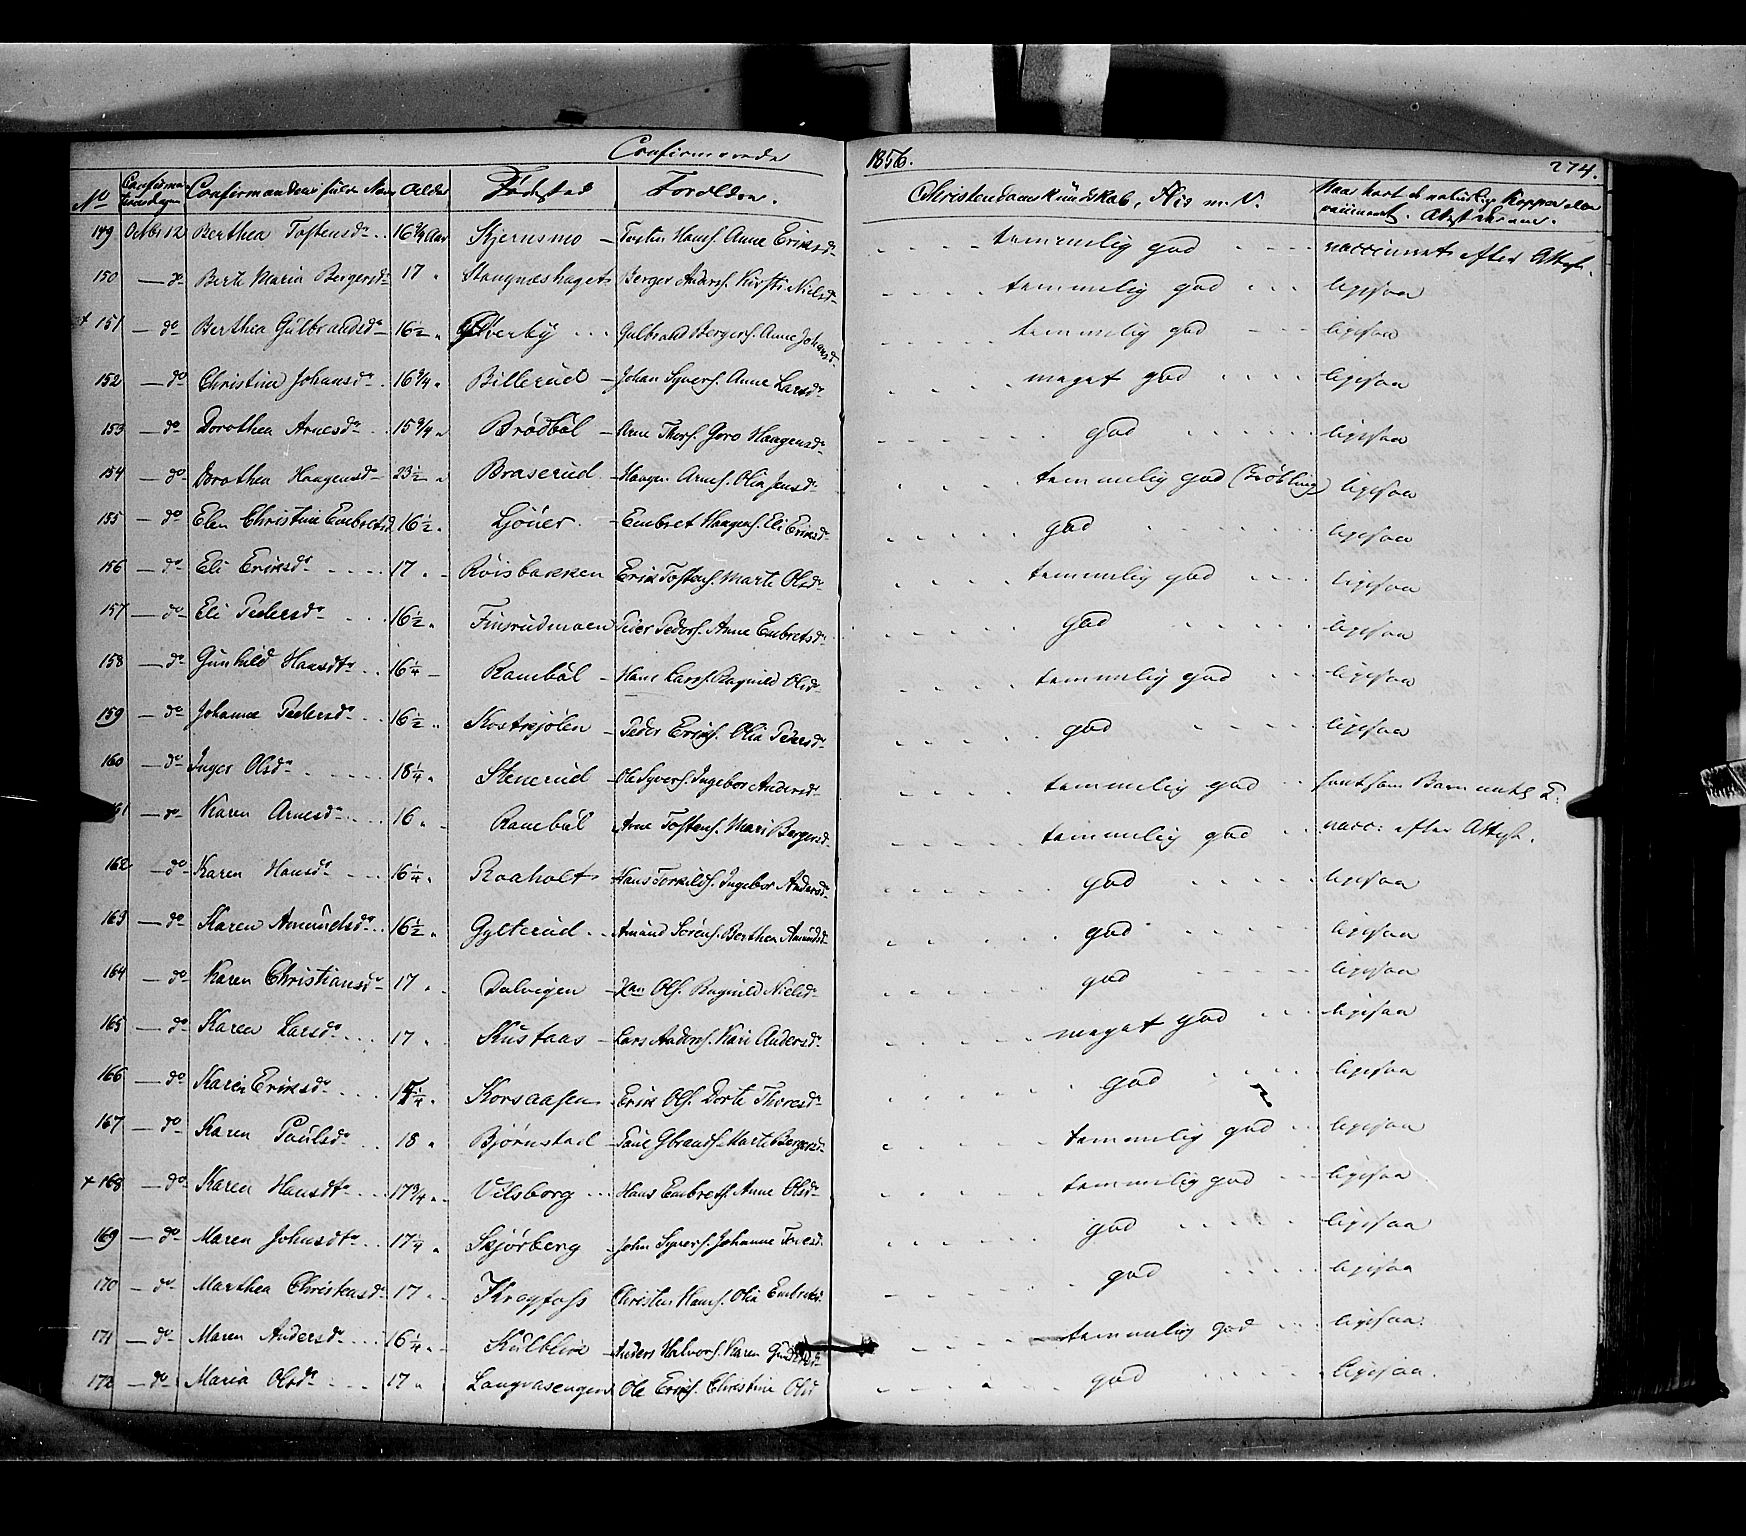 Confirmerede 1856. 274.
No Confirmationsdagen Confirmandens fulde Navn Alder Fødested Forældre. Christendomskundskab, Flid m. V. Naar havt de naturlige Kopper eller vaccineret. Attest derom.
149 Octbr 12 Berthea Tostensdr 16 3/4 Aar Skjernsmo Tosten Hansf. Anne Eriksdr temmelig god vaccineret efter Attest.
150 do Berte Maria Bergersdr 17 Stangnæshaget Berger Andersf. Kirsti Nielsdr temmelig god ligesaa
+ 151 do Berthea Gulbrandsdr 16 1/2 Overby Gulbrand Bergersf. Anne Johansdr temmelig god ligesaa
152 do Christine Johansdr 16 3/4 Billerud Johan Syversf. Anne Larsdr meget god ligesaa
153 do Dorothea Arnesdr 15 3/4 Brødbøl Arne Thorsf. Goro Haagensdr god ligesaa
154 do Dorothea Haagensdr 23 1/2 Braserud Haagen Arnesf. Olia Jensdr temmelig god ligesaa
155 do Elen Christine Embretsd 16 1/2 Ljöner Embret Haagensf. Eli Eriksdr god ligesaa
156 do Eli Eriksdr 17 Röisbakken Erik Tostensf. Marte Olsdr temmelig god ligesaa
157 do Eli Pedersdr 16 1/2 Finsrudmoen Peder Pedersf. Anne Embretsdr god ligesaa
158 do Gunhild Hansdtr 16 1/4 Ranebøl Hans Larsf. Ragnild Olsdr temmelig god ligesaa
159 do Johanne Pedersdr 16 1/2 Kostsjølen Peder Eriksf. Olia Pedersdr god ligesaa
160 do Inger Olsdr 18 1/4 Stenerud Ole Syversf. Ingebor Andersdr temmelig god
161 do Karen Arnesdr 16 Ranebøl Arne Tostensf. Mari Bergersdr temmelig god vacc: efter Attest.
162 do Karen Hansdr 16 1/4 Roaholt Hans Torkildsf. Ingebor Andersdr god ligesaa
163 do Karen Amundsdr 16 1/2 Gylterud Amund Sörensf. Berthea Amundsdr god ligesaa
164 do Karen Christiansdr 17 Dalvigen Olsf. Ragnild Nielsdr god ligesaa
165 do Karen Larsdr 17 Skustaas Lars Andersf. Kari Andersdr meget god ligesaa
166 do Karen Eriksdr Korsaasen Erik Olsf. Dorte Thoresdr god ligesaa
167 do Karen Paulsdr 18 Bjørnstad Paul Gbrandsf. Marte Bergersdr temmelig god ligesaa
+ 168 do Karen Hansdtr 17 3/4 Vilsborg Hans Embretsf. Anne Olsdr temmelig god ligesaa
169 do Maren Johnsdtr 17 1/4 Skjørberg John Syversf. Johanne god ligesaa
170 do Marthea Christensdr 17 Kragfoss Christen Hansf. Olia Embretsd god ligesaa
171 do Maren Andersdr 16 1/4 Kulblire Anders Halvorsf. Karen temmelig god ligesaa.
172 do Maria Olsdr 17 Langvasengen Ole Eriksf. Christine Olsd god ligesaa.